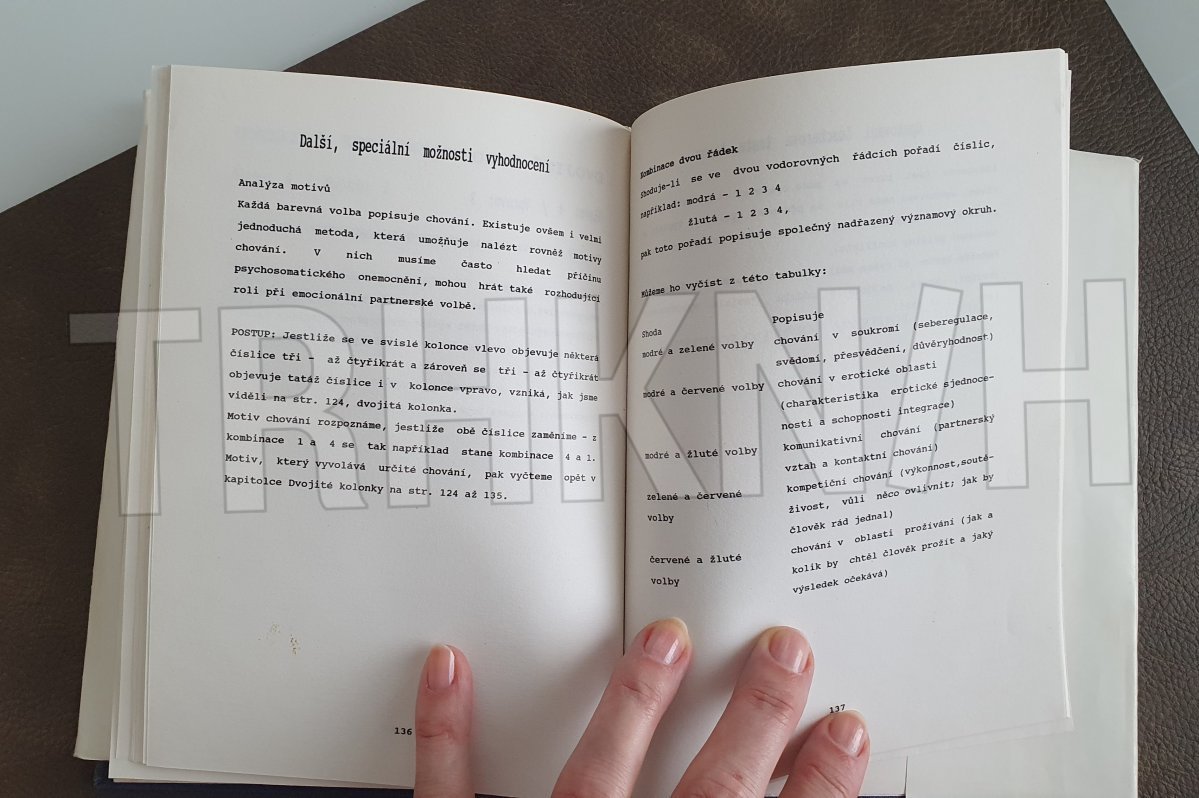 Další, speciální možnosti vyhodnocení
Analýza motivů
Každá barevná volba popisuje chování. Existuje ovšem i velmi
jednoduchá metoda, která umožňuje nalézt rovněž motivy
chování. V nich musíme často hledat příčinu
psychosomatického onemocnění, mohou hrát také rozhodující
roli při emocionální partnerské volbě.
POSTUP: Jestliže se ve svislé kolonce vlevo objevuje některá
číslice tři - až čtyřikrát a zároveň se tři - až čtyřikrát
objevuje tatáž číslice i v kolonce vpravo, vzniká, jak jsme
viděli na str. 124, dvojitá kolonka.
Motiv chování rozpoznáme, jestliže obě číslice zaměníme - z
kombinace 1 a 4 se tak například stane kombinace 4 a 1.
Motiv, který vyvolává určité chování, pak vyčteme opět v
kapitolce Dvojité kolonky na str. 124 až 135.
136
Kombinace dvou řádek
Shoduje-li se ve dvou vodorovných řádcích pořadí číslic,
například: modrá - 1 2 3 4
žlutá - 1 2 3 4,
pak toto pořadí popisuje společný nadřazený významový okruh.
Můžeme ho vyčíst z této tabulky:
Shoda Popisuje
modré a zelené volby chování v soukromí (seberegulace,
svědomí, přesvědčení, důvěryhodnost)
modré a červené volby chování v erotické oblasti
(charakteristika erotické sjednoce-
nosti a schopnosti integrace)
modré a žluté volby komunikativní chování (partnerský
vztah a kontaktní chování)
zelené a červené kompetiční chování (výkonnost,soutě-
volby živost, vůli něco ovlivnit; jak by
člověk rád jednal)
červené a žluté chování v oblasti prožívání (jak a
volby kolik by chtěl člověk prožít a jaký
výsledek očekává)
137
TRHKNIH